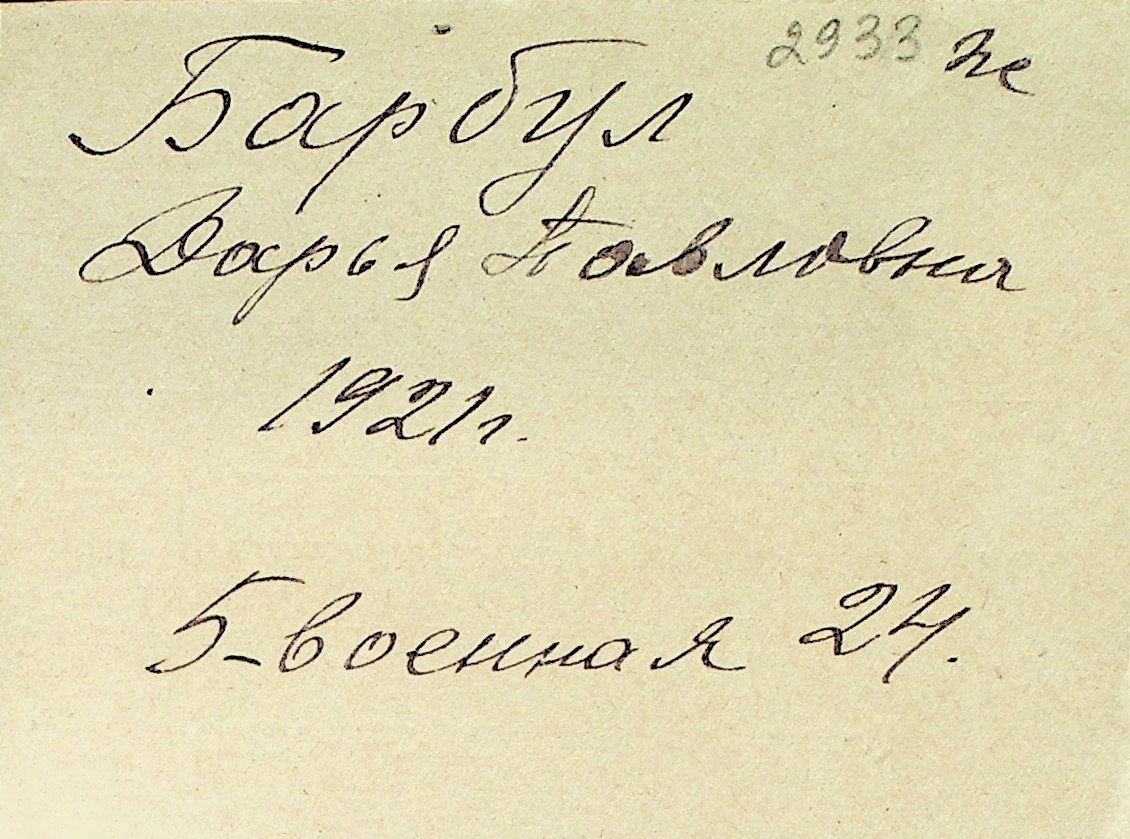 2933 не
Барбул
Дарья Павловна
1921г.
5-военная 24.